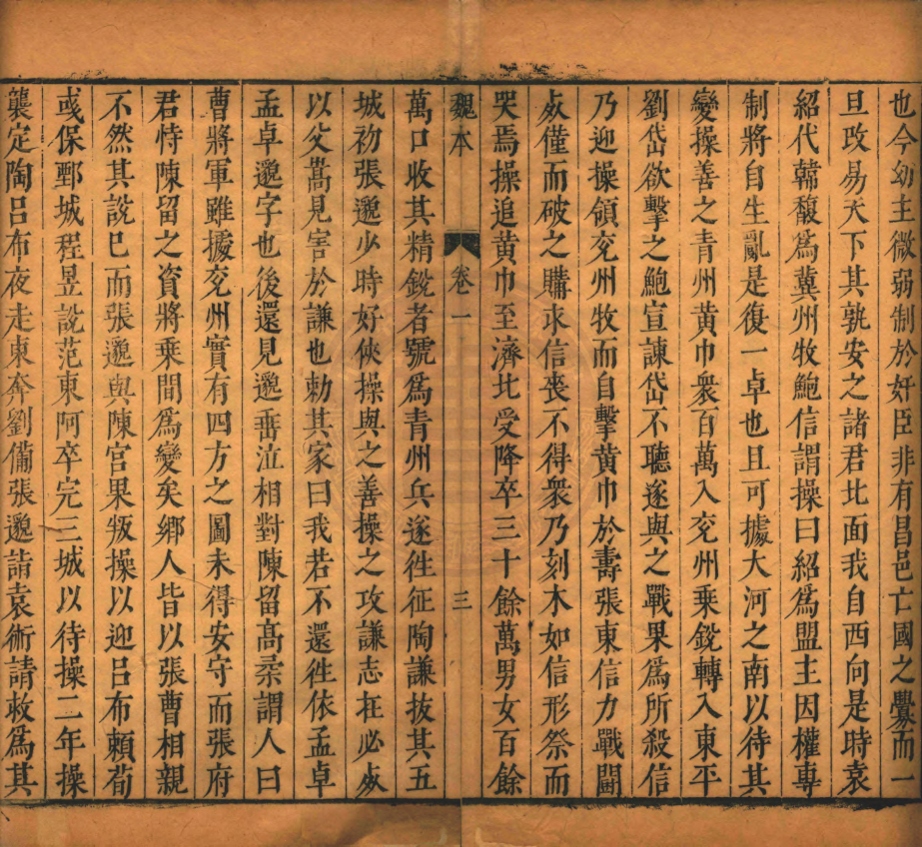 也今幼主微弱制於奸臣非有昌邑亡國之舋而一
旦攺易天下其孰安之諸君北面我自西向是時袁
紹代韓馥爲冀州牧鮑信謂操曰紹爲盟主因權專
制將自生亂是復一卓也且可據大河之南以待其
變操善之青州黄巾衆百萬入兖州乗銳轉入東平
劉岱欲擊之鮑宣諫岱不聽遂與之戰果爲所殺信
乃迎操領兖州牧而自擊黄巾於壽張東信力戰鬬
死僅而破之購求信喪不得衆乃刻木如信形祭而
哭焉操追黄巾至濟北受降卒三十餘萬男女百餘
魏本 卷一 三
萬口收其精銳者號爲青州兵遂徃征陶謙抜其五
城初張邈少時好俠操與之善操之攻謙志在必死
以父嵩見害於謙也勅其家曰我若不還徃依孟卓
孟卓邈字也後還見邈垂泣相對陳留髙柔謂人曰
曹將軍雖據兖州實有四方之圖未得安守而張府
君恃陳留之資將乗間爲變矣鄉人皆以張曹相親
不然其說巳而張邈與陳宫果叛操以迎吕布頼荀
彧保鄄城程昱說范東阿卒完三城以待操二年操
襲定陶吕布夜走東奔劉備張邈詣袁術請救爲其